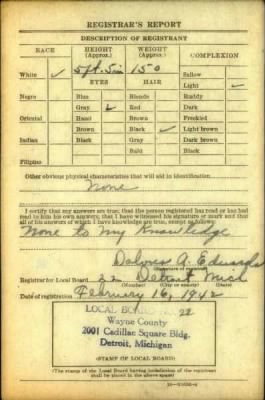 REGISTRAR'S REPORT
DESCRIPTION OF REGISTRANT
RACE HEIGHT (Approx.) WEIGHT (Approx.) COMPLEXION
White ✓ 5 ft. 5 in 150 Sallow
EYES HAIR Light ✓
Negro Blue Blonde Ruddy
Gray ✓ Red Dark
Oriental Hazel Brown Freckled
Brown Black ✓ Light brown
Indian Black Gray Dark brown
Bald Black
Filipino
Other obvious physical characteristics that will aid in identification
None
I certify that my answers are true; that the person registered has read or has had
read to him his own answers; that I have witnessed his signature or mark and that
all of his answers of which I have knowledge are true, except as follows:
None to my Knowledge
Dolores A. Edwards
(Signature of registrar)
Registrar for Local Board 22 Detroit Mich
(Number) (City or county) (State)
Date of registration February 16, 1942
LOCAL BOARD NO. 22
Wayne County
2001 Cadillac Square Bldg.
Detroit, Michigan
(STAMP OF LOCAL BOARD)
(The stamp of the Local Board having jurisdiction of the registrant
shall be placed in the above space.)